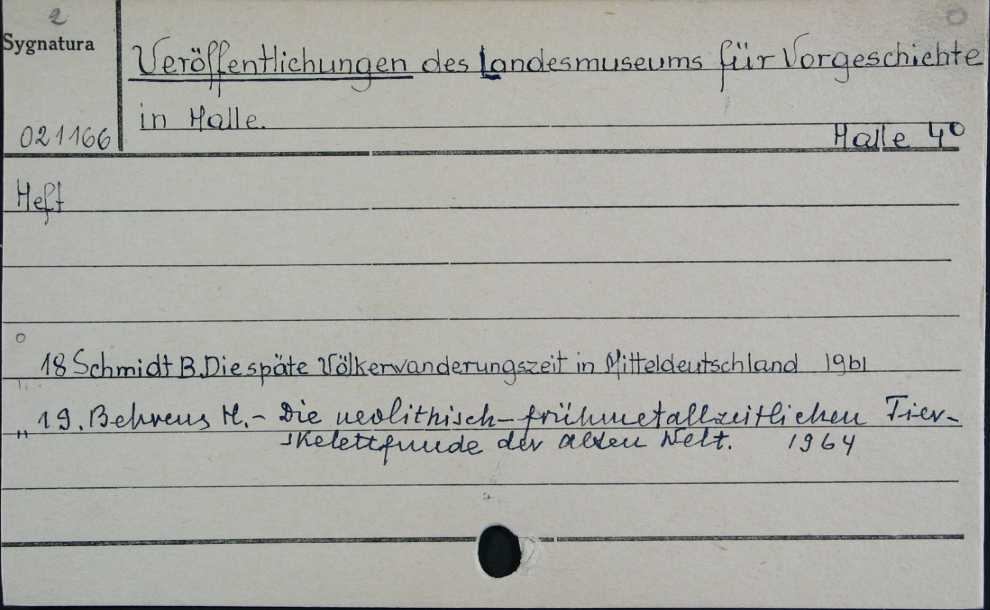 2
Sygnatura
021166
Veröffentlichungen des Landesmuseums für Vorgeschichte
in Halle.
Halle 4°
Heft
18 Schmidt B. Die späte Völkerwanderungszeit in Mitteldeutschland 1961
" 19. Behrens H. - Die neolithisch-frühmetallzeitlichen Tier-
skelettfunde der alten Welt. 1964